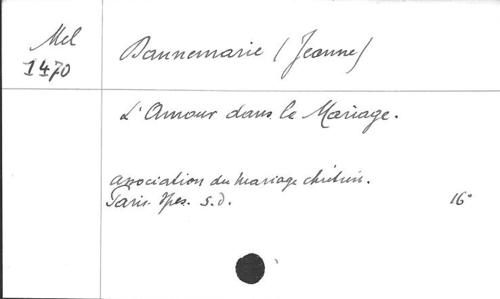 Mel
1470
Dannemarie (Jeanne)
L'Amour dans le Mariage.
association du mariage chrétien.
Paris. Spes. s.d. 16°